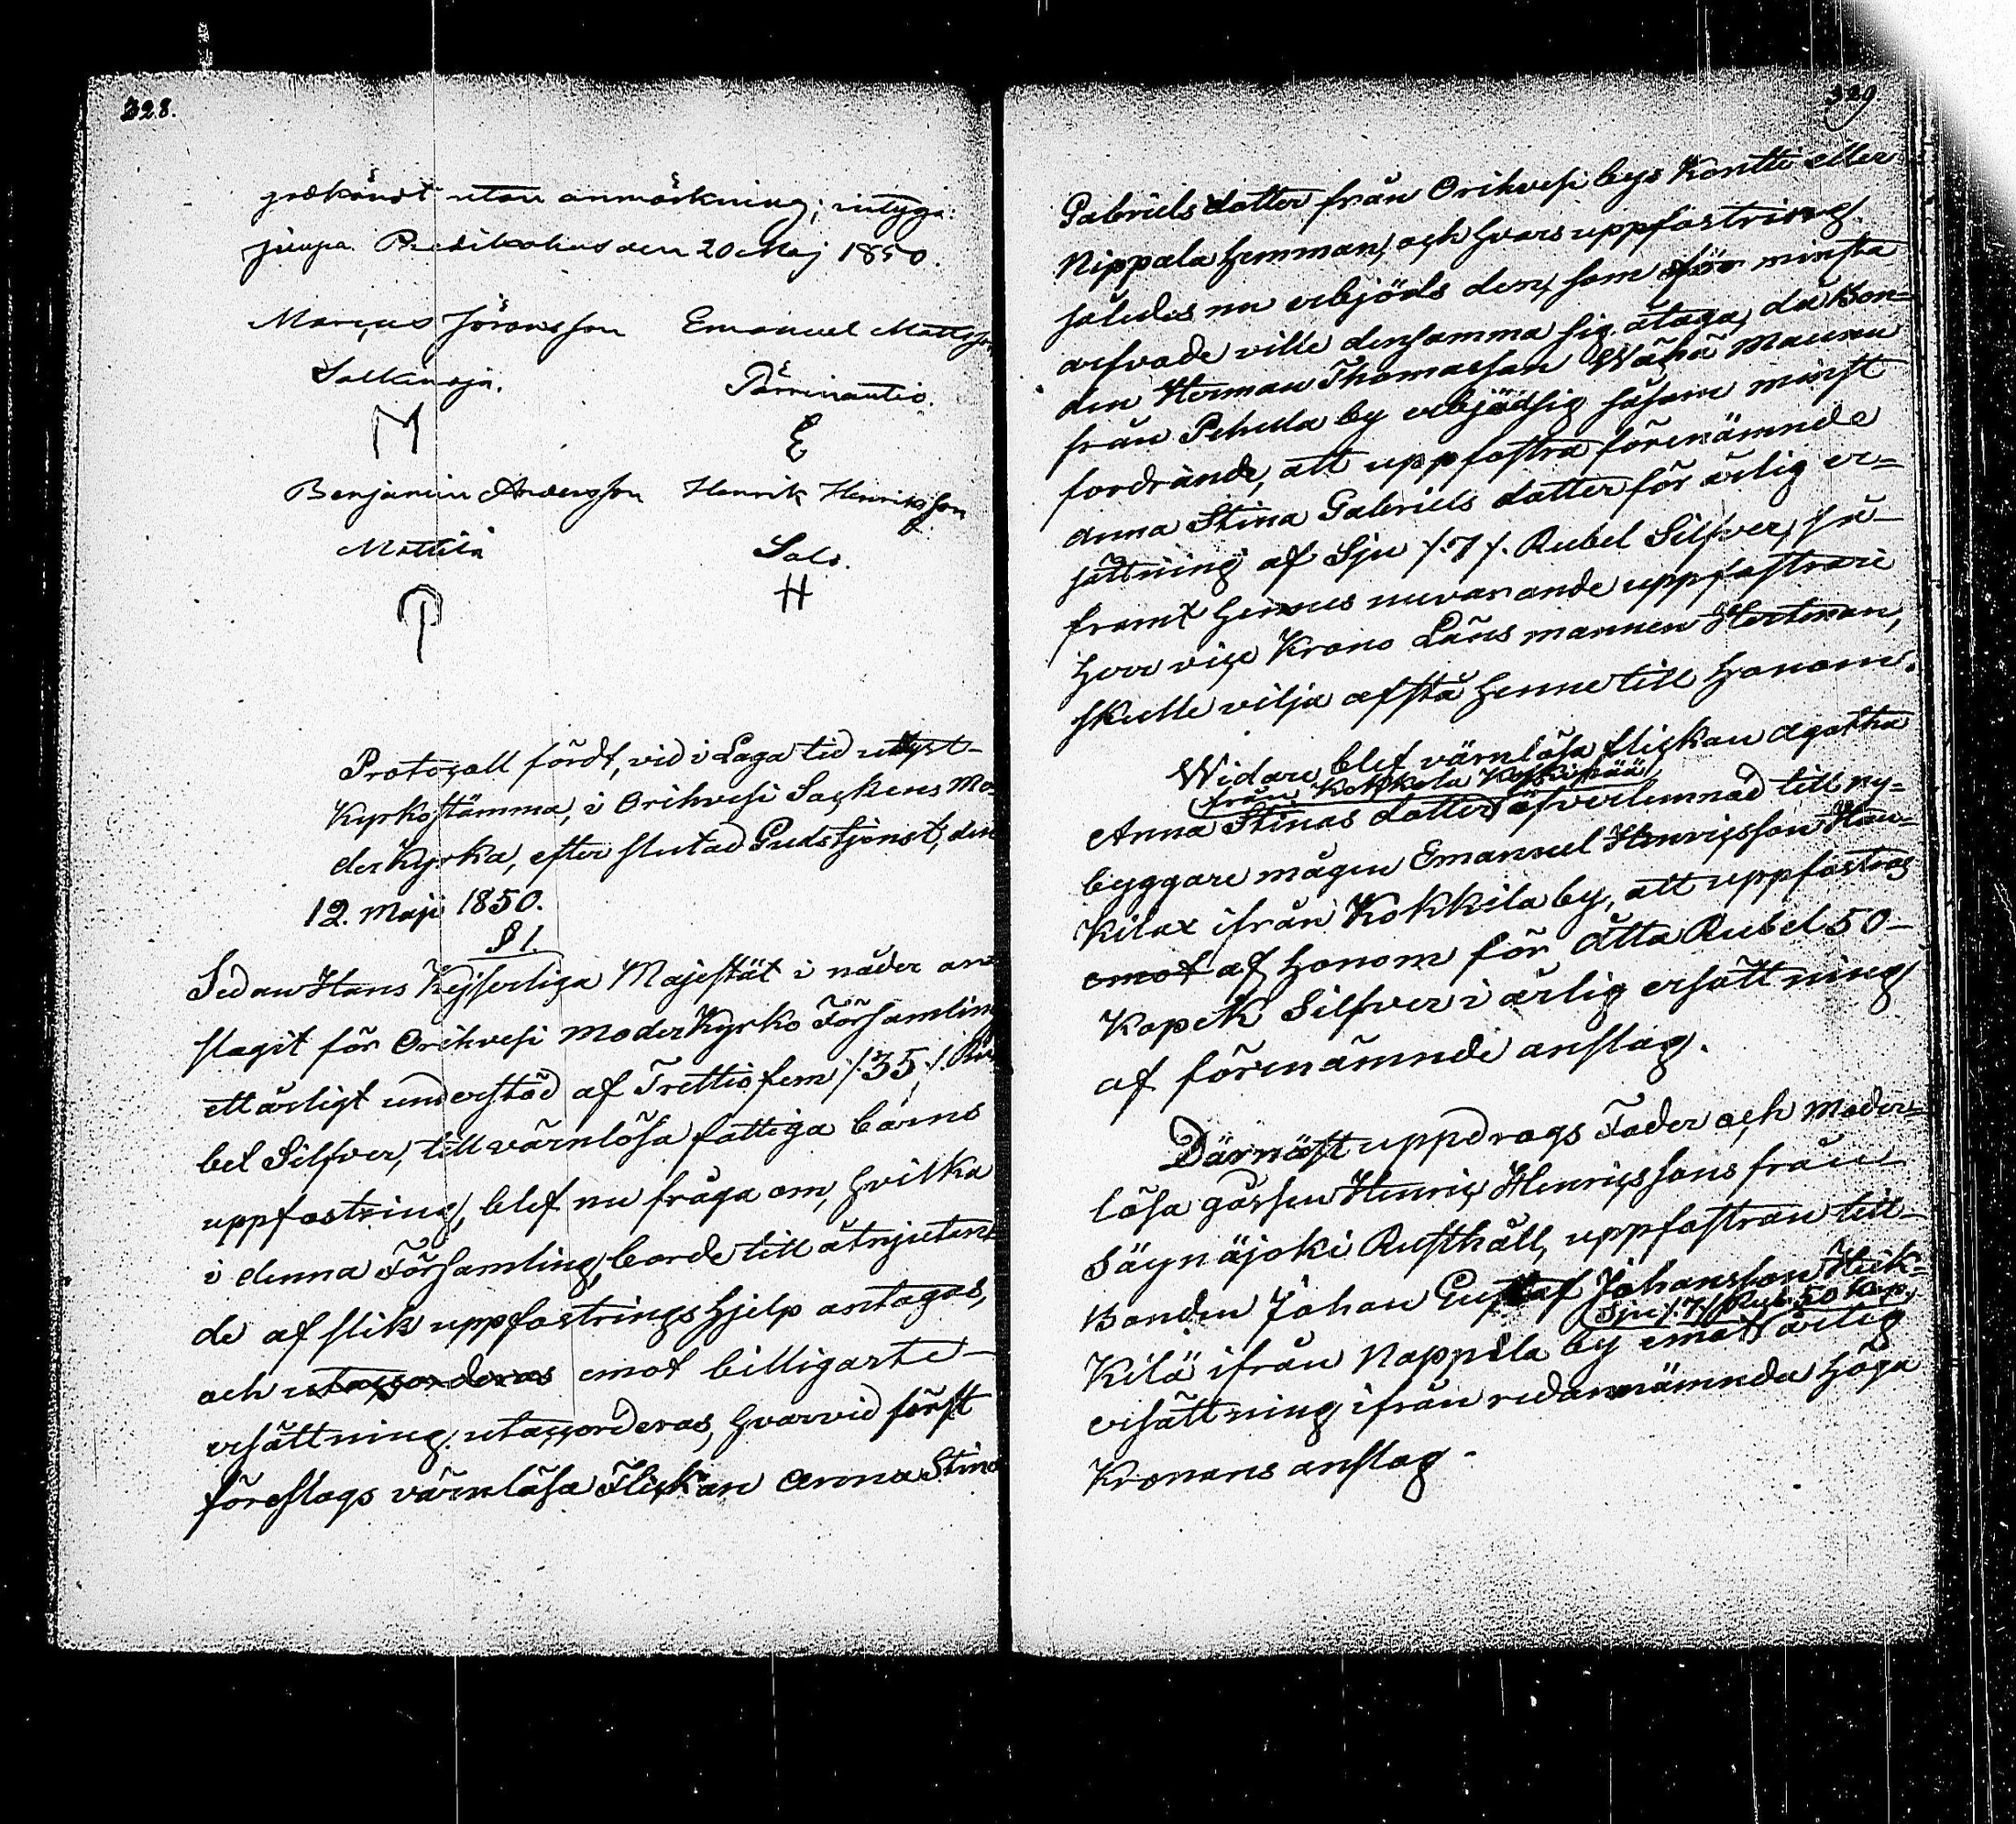 328.
godkändt utan anmärkning; intyga:
Predikohus den 20 Maj 1850.
Marcus Jöransson Emanuel Mattsson
Salkinoja.
M E
Benjamin Andersson Henrik Henriksson
Mattila Salo.
H
Protocoll fördt, vid i Laga tid utlyst
Kyrkostämma, i Orihvesi Sockens Mo-
derkyrka, efter slutad Gudstjenst, den
12. Maji 1850.
§ 1.
Sedan Hans Kejserliga Majestät i nåder an-
slagit för Orihvesi moderkyrko Församling
ett årligt understöd af Trettiofem /:35:/ Ru-
bel Silfver, till värnlösa fattiga barns
uppfostring, blef nu fråga om, hvilka
i denna Församling, borde till åtnjutan-
de af slik uppfostringshjelp antagas,
och utackorderas emot billigaste
ersättning utackorderas, hvarvid först
föreslogs värnlösa Flickan Anna Stina
329.
Gabriels dotter från Orihvesi bys Kontti eller
Nippala hemman, och hvars uppfostring
således nu erbjöds den, som för minsta
arfvode ville densamma sig åtaga, då Bon-
den Herman Thomasson Wähä Maunu
från Pehula by erbjöd sig såsom minst
fordrande, att uppfostra förenämnde
Anna Stina Gabriels dotter för årlig er-
sättning af Sju /:7:/ Rubel Silfver, så-
framt hennes nuvarande uppfostrare
Herr vice Krono Länsmannen Hertman,
skulle vilja afstå henne till honom.
Widare blef värnlösa flickan Agatha
från Kokkola
Anna Stinas dotter öfverlemnad till ny-
byggare mågen Emanuel Henricsson
Kila ifrån Kokkila by, att uppfostras
emot af honom för Åtta Rubel 50
Kopek Silfver i årlig ersättning
af förenämnde anslag.
Därnäst uppdrogs Fader och Moder-
lösa gossen Henric Henricssons från
Säynäjoki Rusthåll, uppfostran till
Bonden Johan Gustaf Johansson Heik-
Sju /:7:/ Rub. 50 Kop.
Kilä ifrån Nappila by emot årlig
ersättning ifrån redannämnda höga
Kronans anslag.